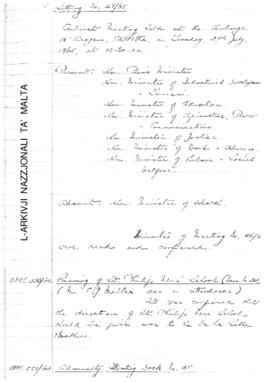 Sitting No. 27/65
Cabinet Meeting held at the Auberge
d'Aragon, Valletta, on Tuesday, 27th July,
1965, at 10.30 am.
Present: Hon. Prime Minister
Hon. Minister of Industrial Development
& Tourism
Hon. Minister of Education
Hon. Minister of Agriculture, Power
& Communications
Hon. Minister of Justice
Hon. Minister of Works & Housing
Hon. Minister of Labour & Social
Welfare.
Absent: Hon. Minister of Health.
Minutes of Meeting No.
were read and confirmed.
Running of St. Philip Neri School
(Mr. was in attendance)
It was confirmed that
the direction of St. Philip Neri School
should be given over to the De La Salle
Brothers.
Admiralty Floating Dock No.
L-ARKIVJI NAZZJONALI TA' MALTA